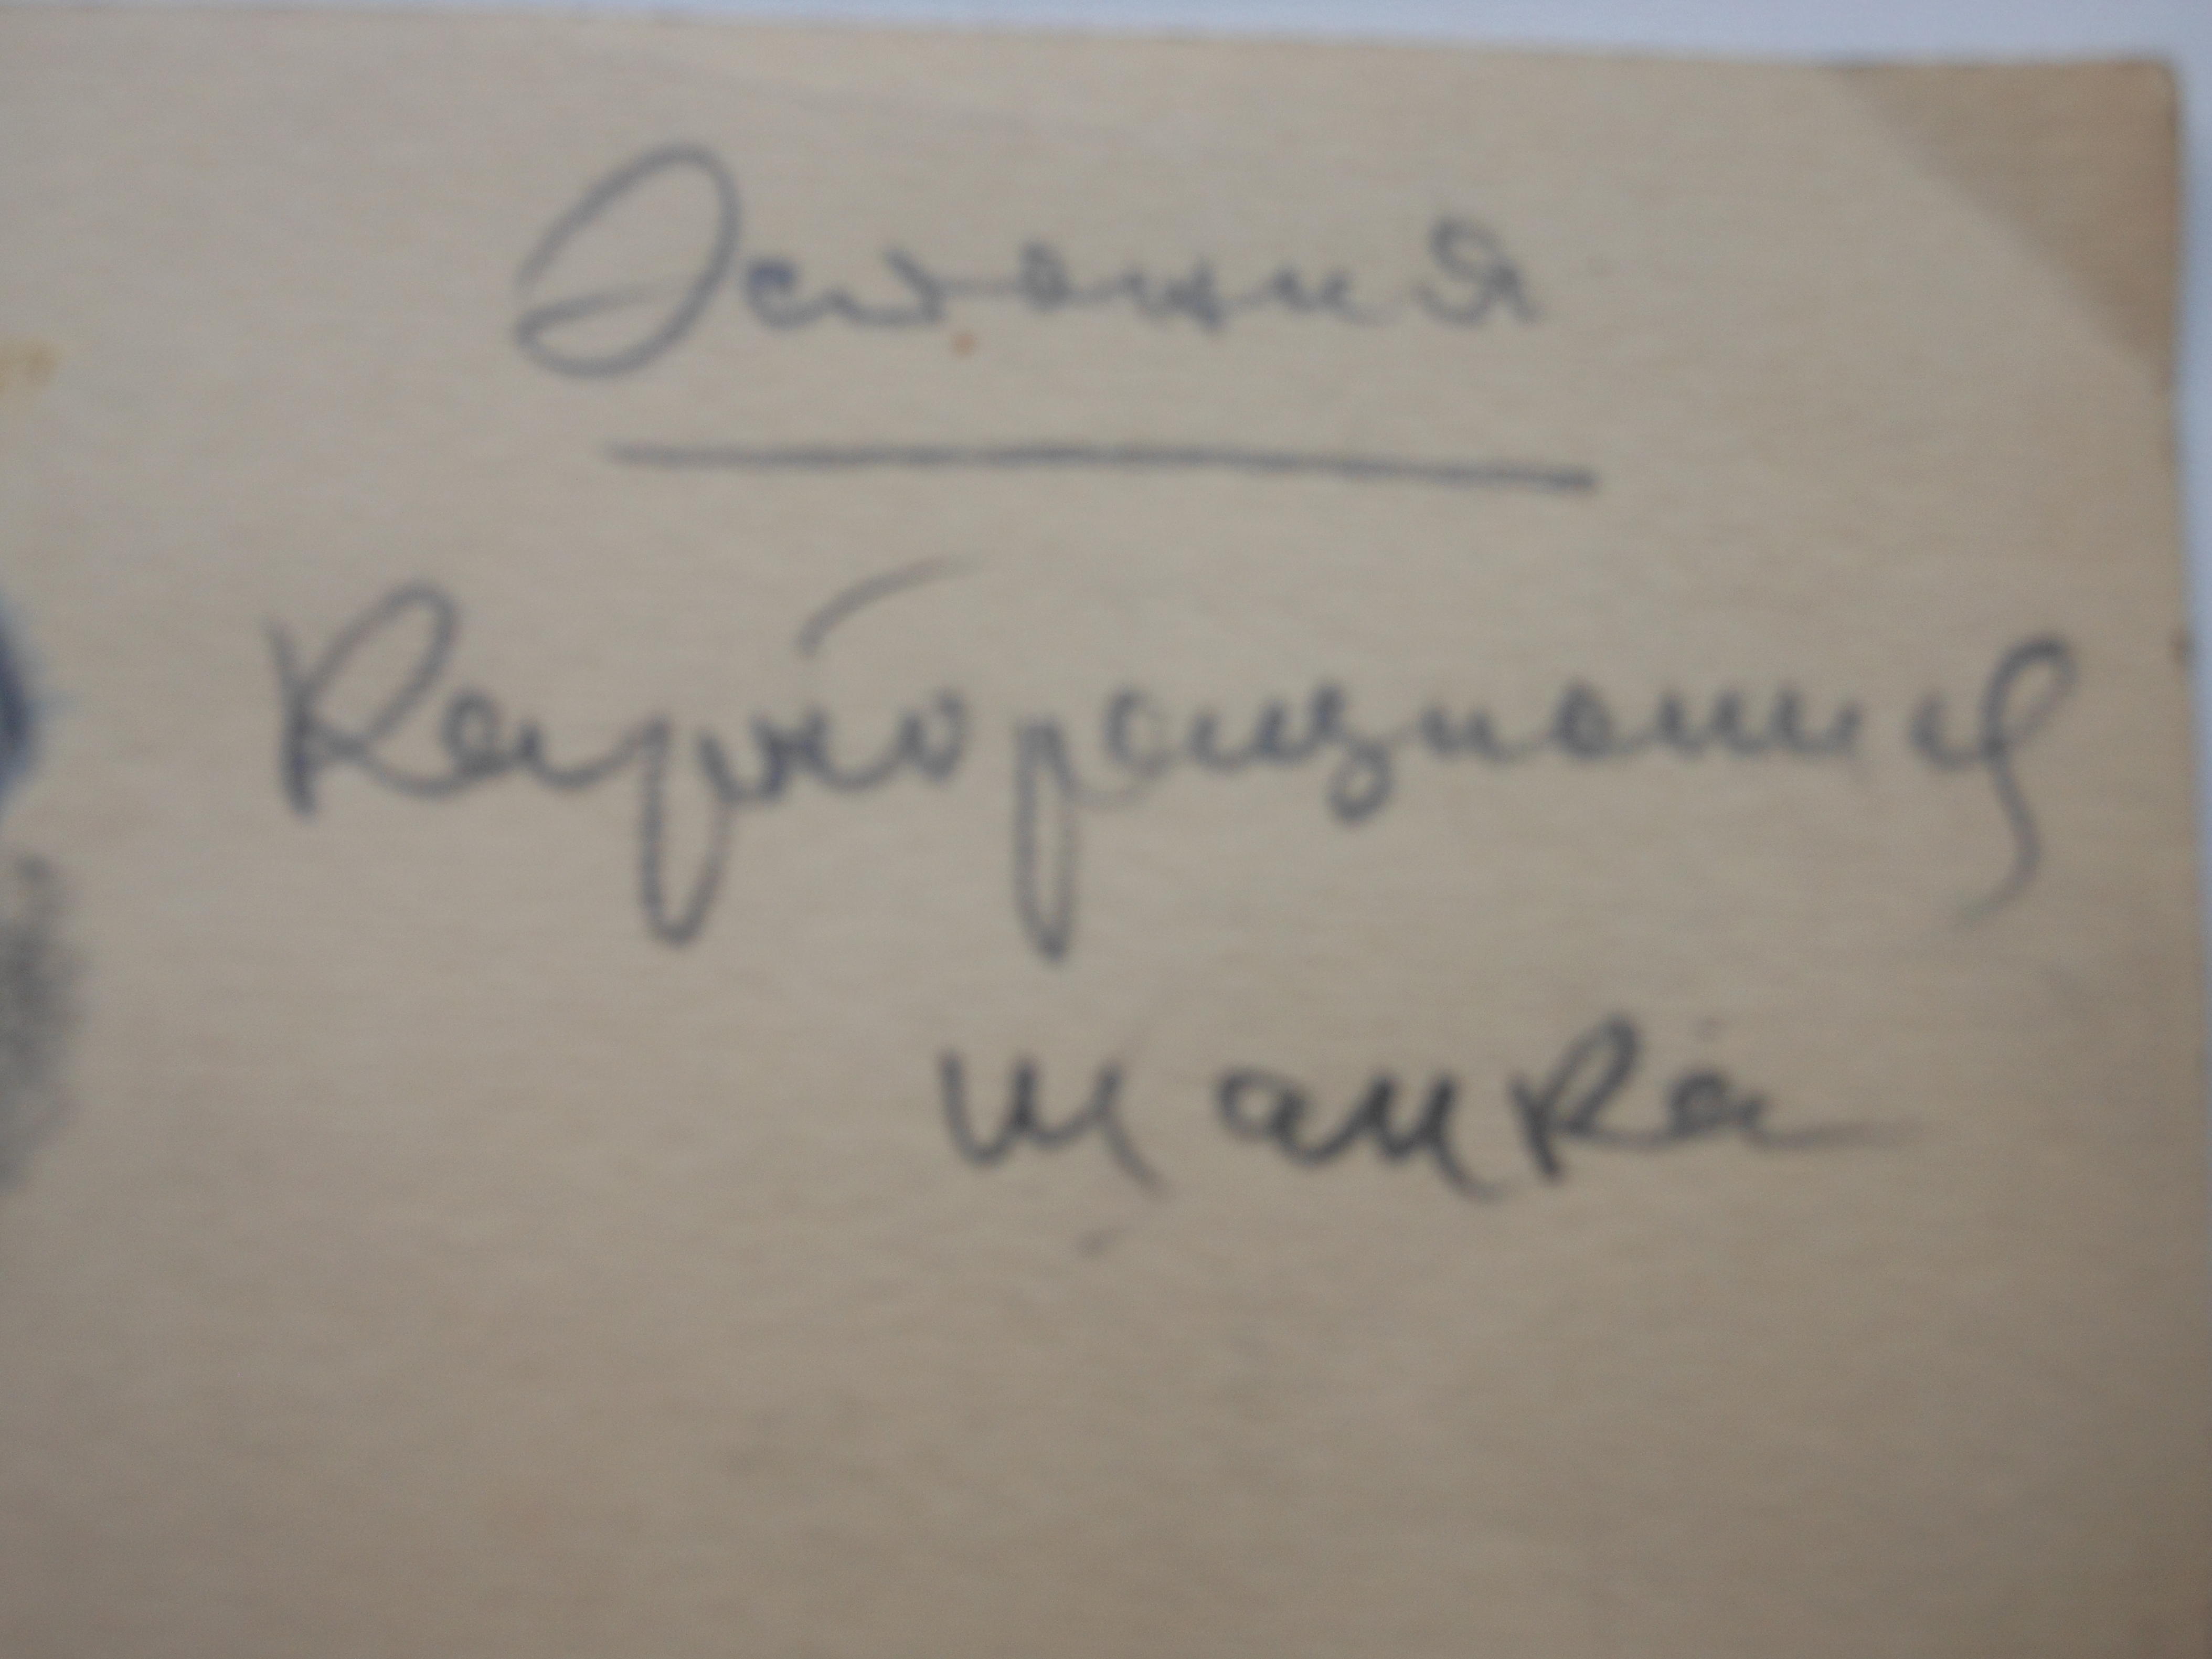 Эстония
Корпорационная
шапка